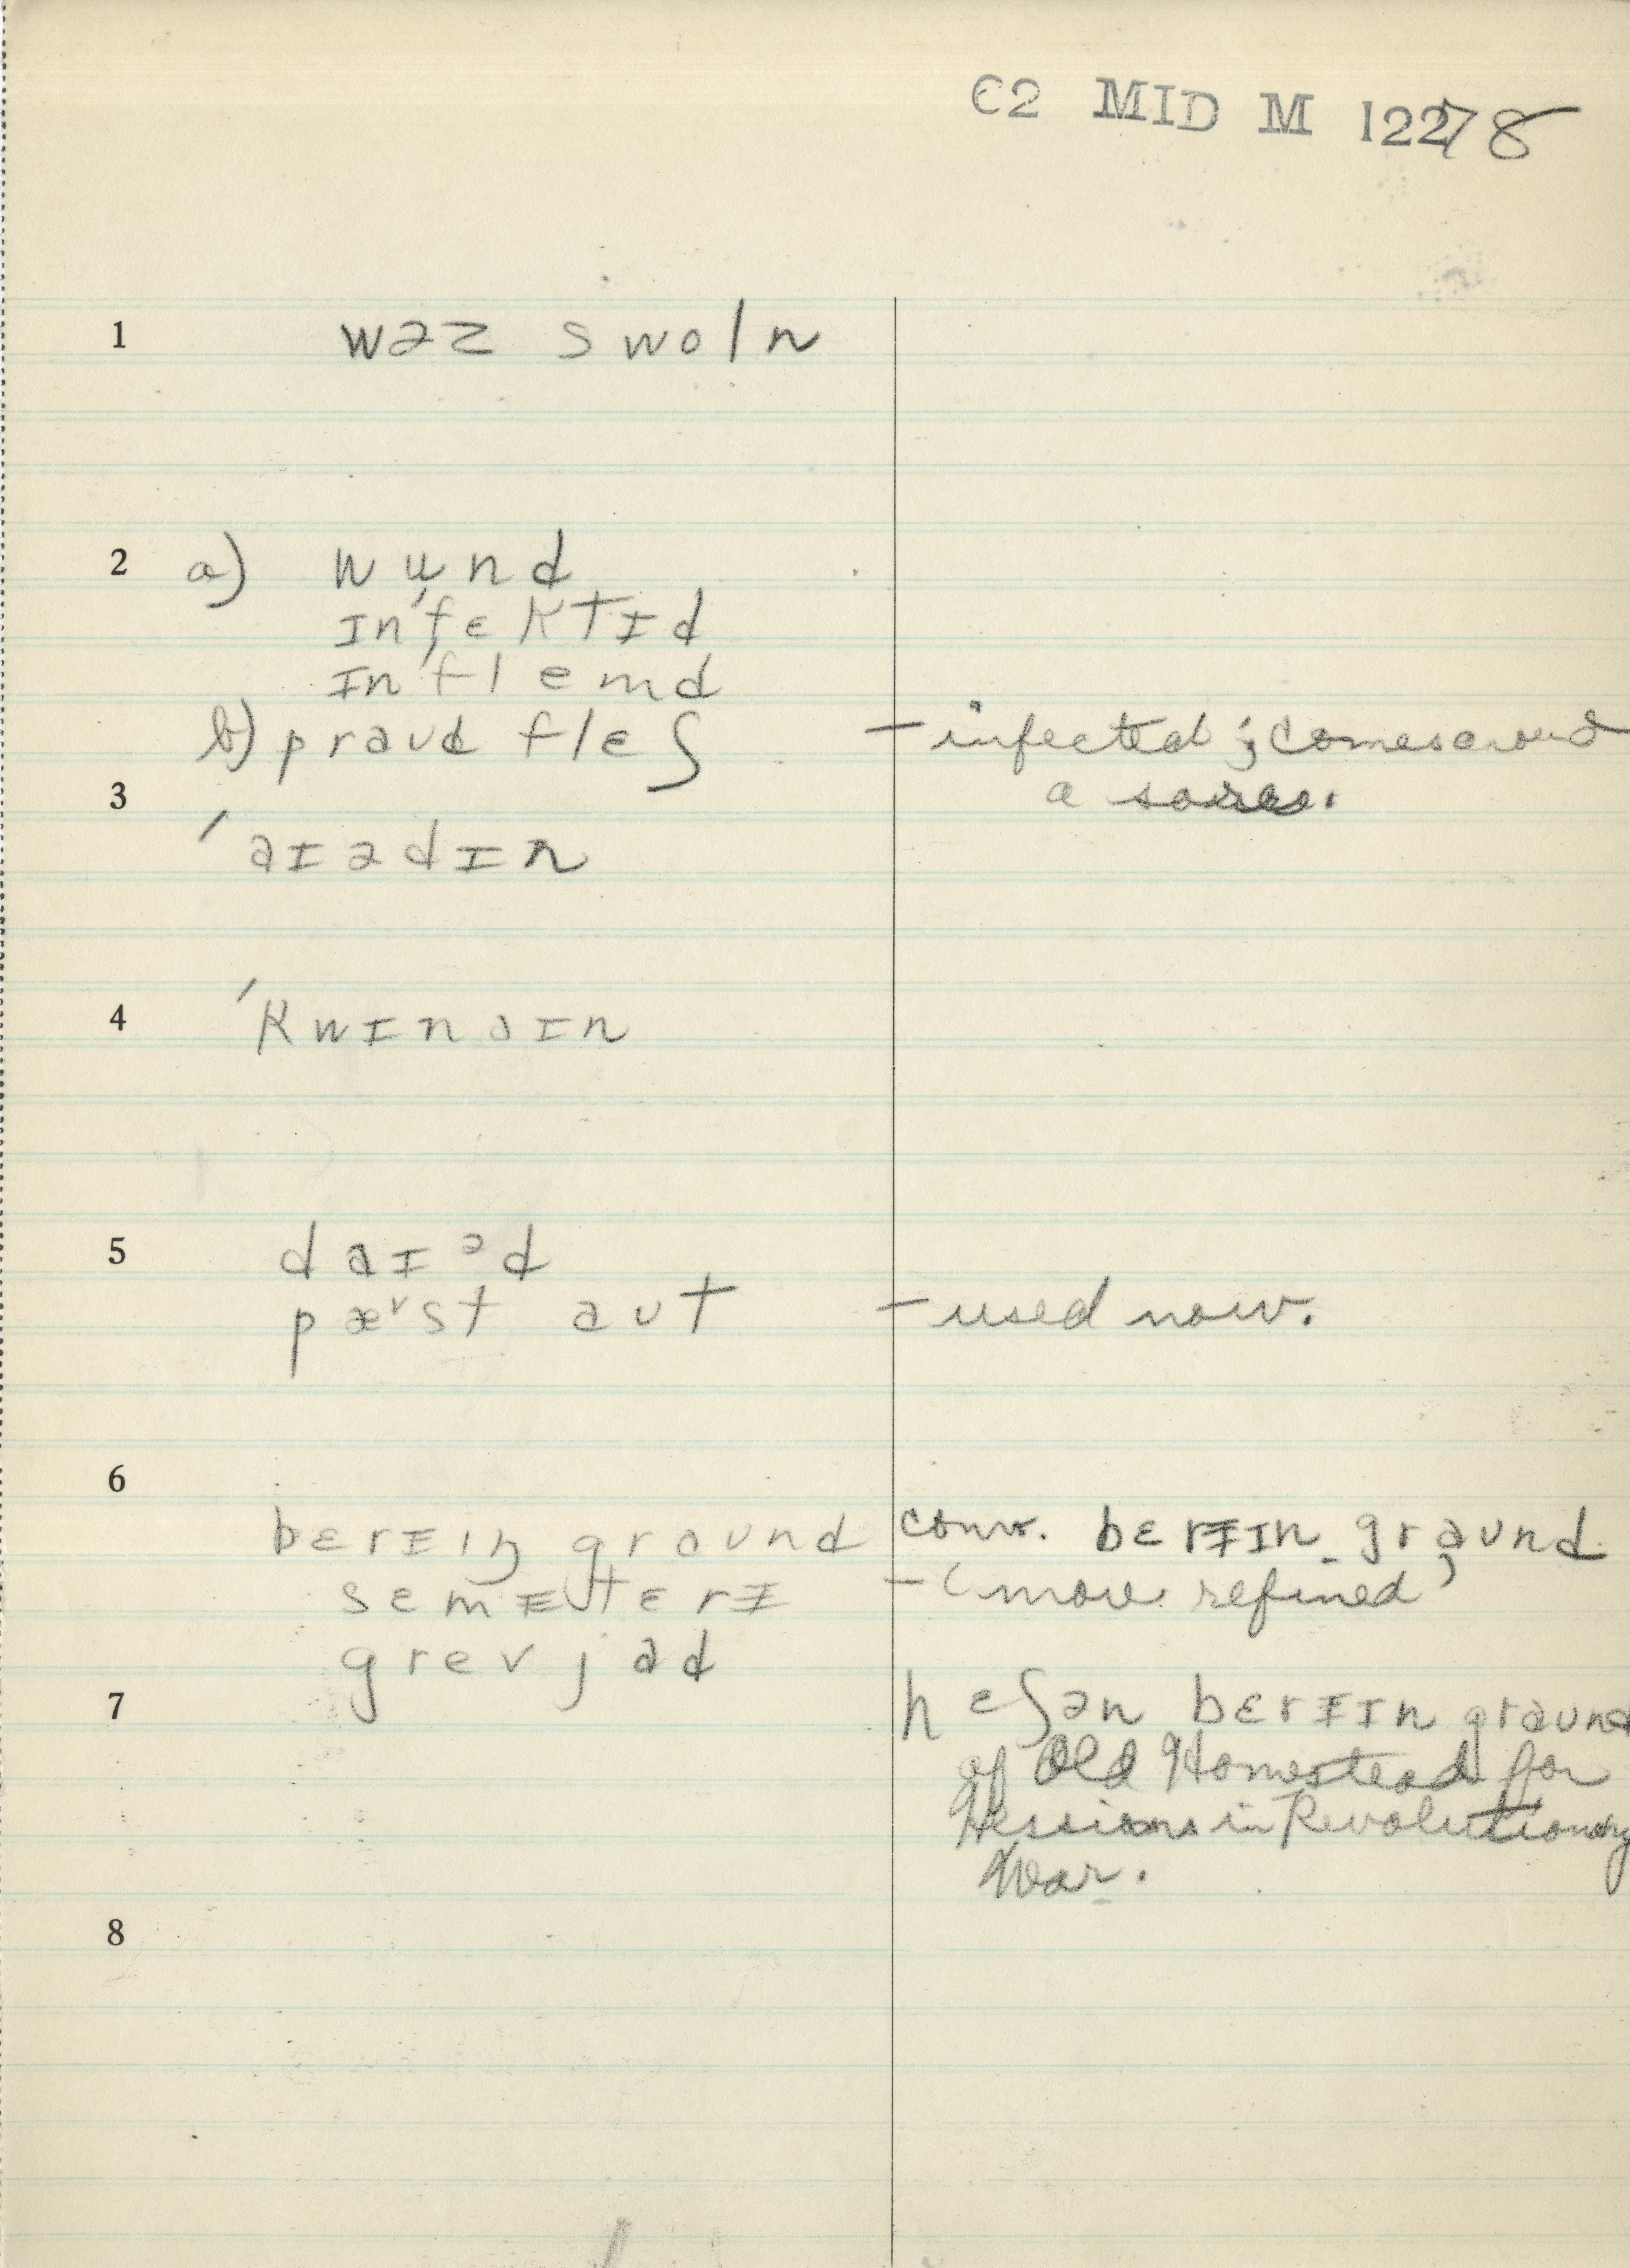 C2 MID M 12278
1 wəz swoln
2 a) wund
ɪnˈfɛktɪd
ɪnˈflemd
b) praʊd flɛʃ – infected; comes around
3 a sore.
ˈaɪədɪn
4 ˈkwɪnɪn
5 daɪᵊd
pæᵛst aʊt – used now.
6
bɛrɪɪŋ graʊnd conv. bɛrɪɪn graʊnd
sɛmɪtɛrɪ – (more refined)
grevjad
7 hɛʃən bɛrɪɪn graʊnd
of Old Homestead for
Hessians in Revolutionary
War.
8